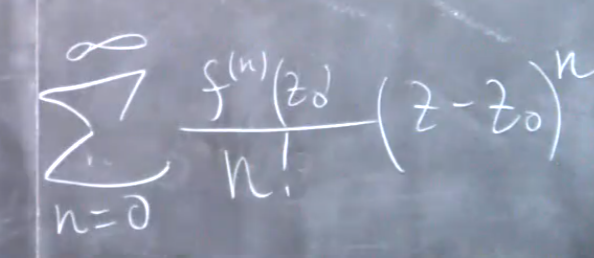 $$\sum_{n=0}^{\infty} \frac{f^{(n)}(z_0)}{n!} (z - z_0)^n$$